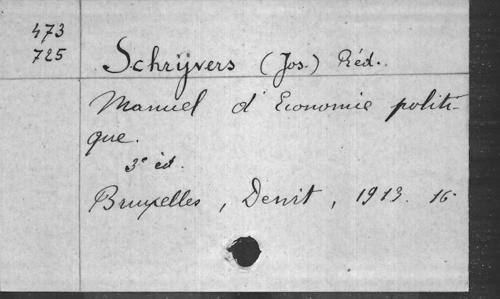 473
725
Schrijvers (Jos.) Réd.
Manuel d'Economie politi-
que.
3e éd.
Bruxelles, Dewit, 1913. 16°